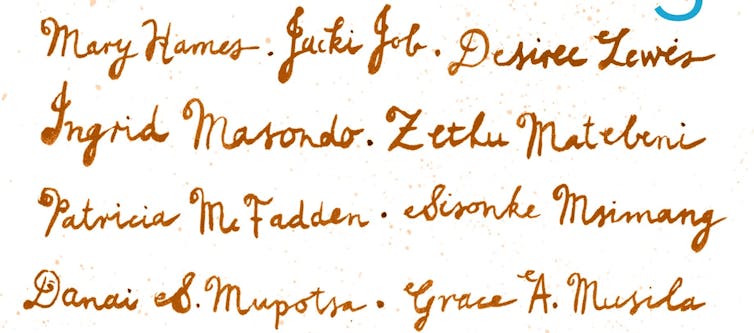 Mary Hames . Jacki Job . Desiree Lewis
Ingrid Masondo . Zethu Matebeni
Patricia McFadden . Sisonke Msimang
Danai S. Mupotsa . Grace A. Musila